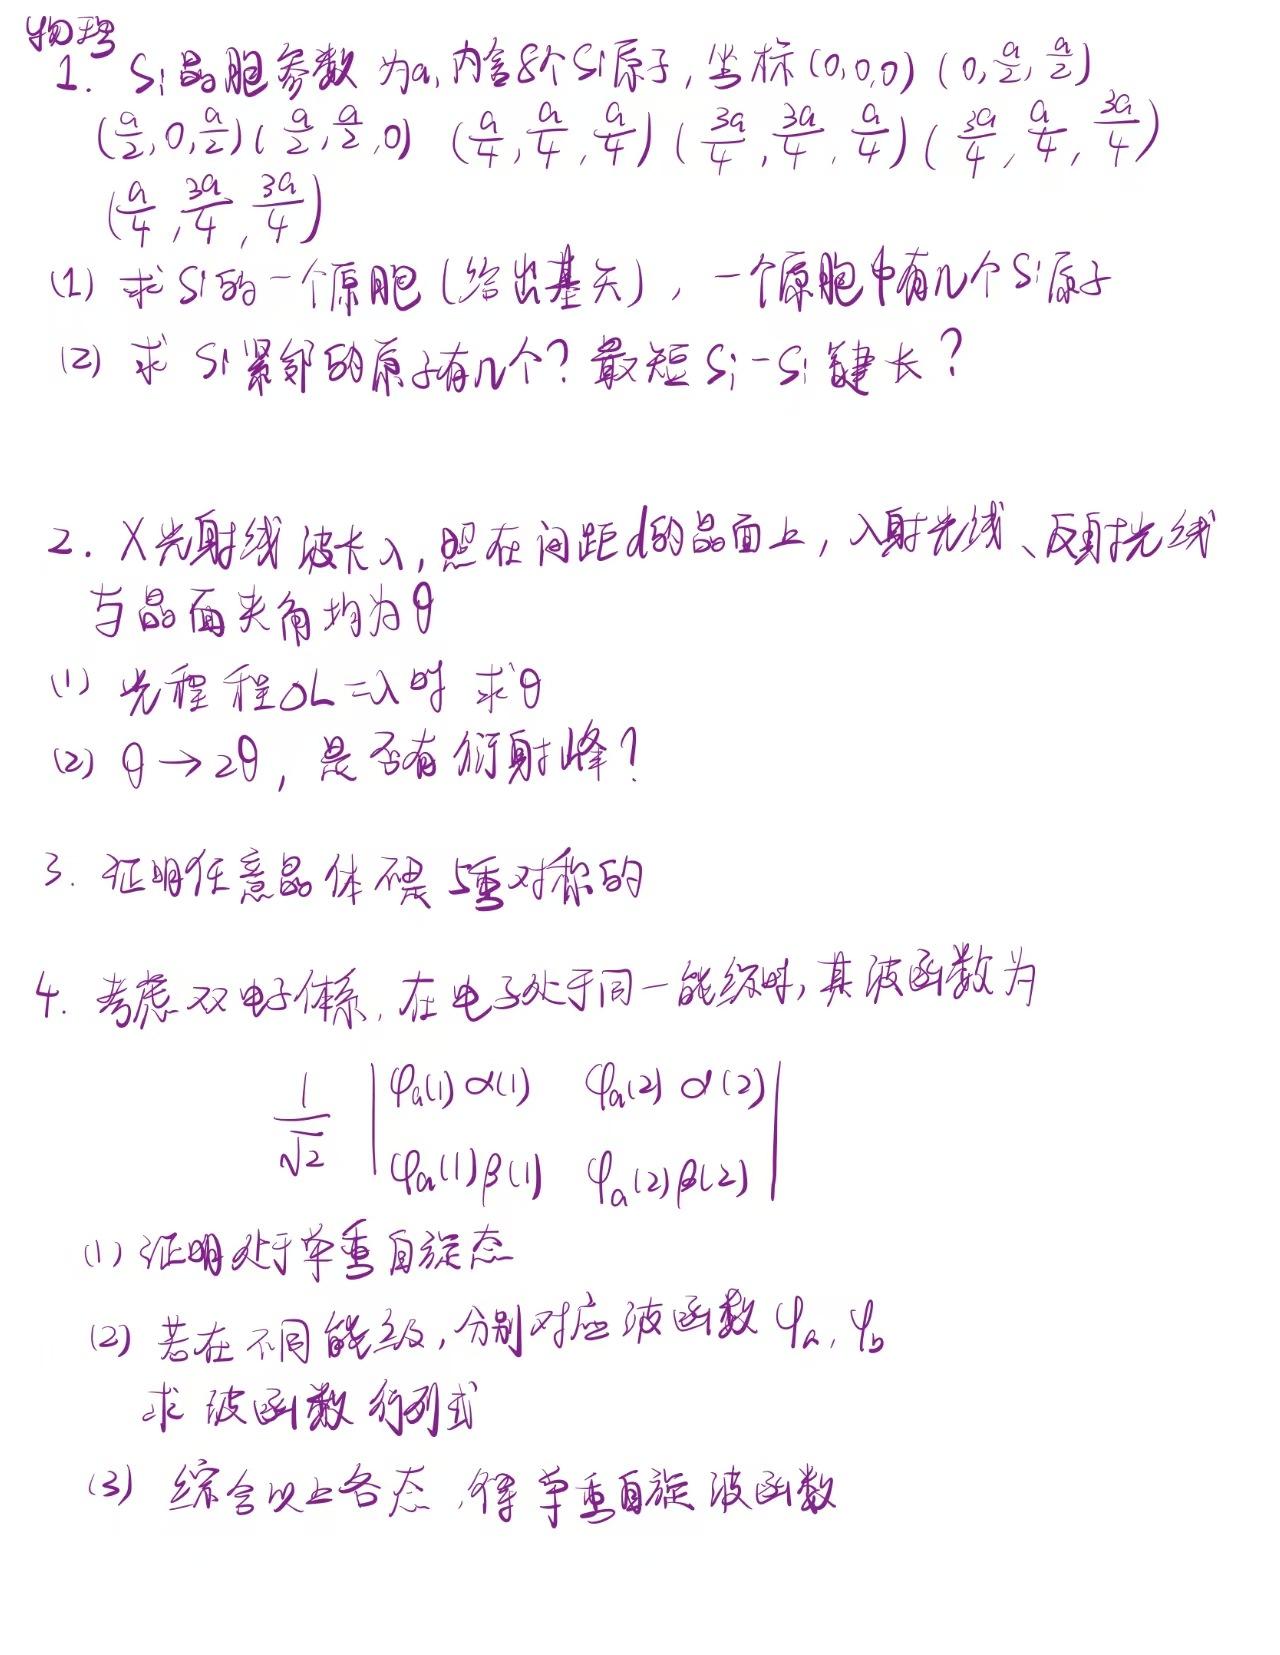 物理
1. Si晶胞参数为a,内含8个Si原子,坐标(0,0,0) (0,a/2,a/2)
(a/2,0,a/2)(a/2,a/2,0) (a/4,a/4,a/4)(3a/4,3a/4,a/4)(3a/4,a/4,3a/4)
(a/4,3a/4,3a/4)
(1) 求Si的一个原胞(给出基矢),一个原胞中有几个Si原子
(2) 求Si紧邻的原子有几个?最短Si-Si键长?
2. X光射线波长λ,照在间距d的晶面上,入射光线、反射光线
与晶面夹角均为θ
(1) 光程程ΔL=λ时 求θ
(2) θ→2θ,是否有衍射峰?
3. 证明任意晶体不是5重对称的
4. 考虑双电子体系,在电子处于同一能级时,其波函数为
1/√2 | φa(1)α(1) φa(2)α(2) |
| φa(1)β(1) φa(2)β(2) |
(1) 证明处于单重自旋态
(2) 若在不同能级,分别对应波函数φa,φb
求波函数行列式
(3) 综合以上各态,得单重自旋波函数